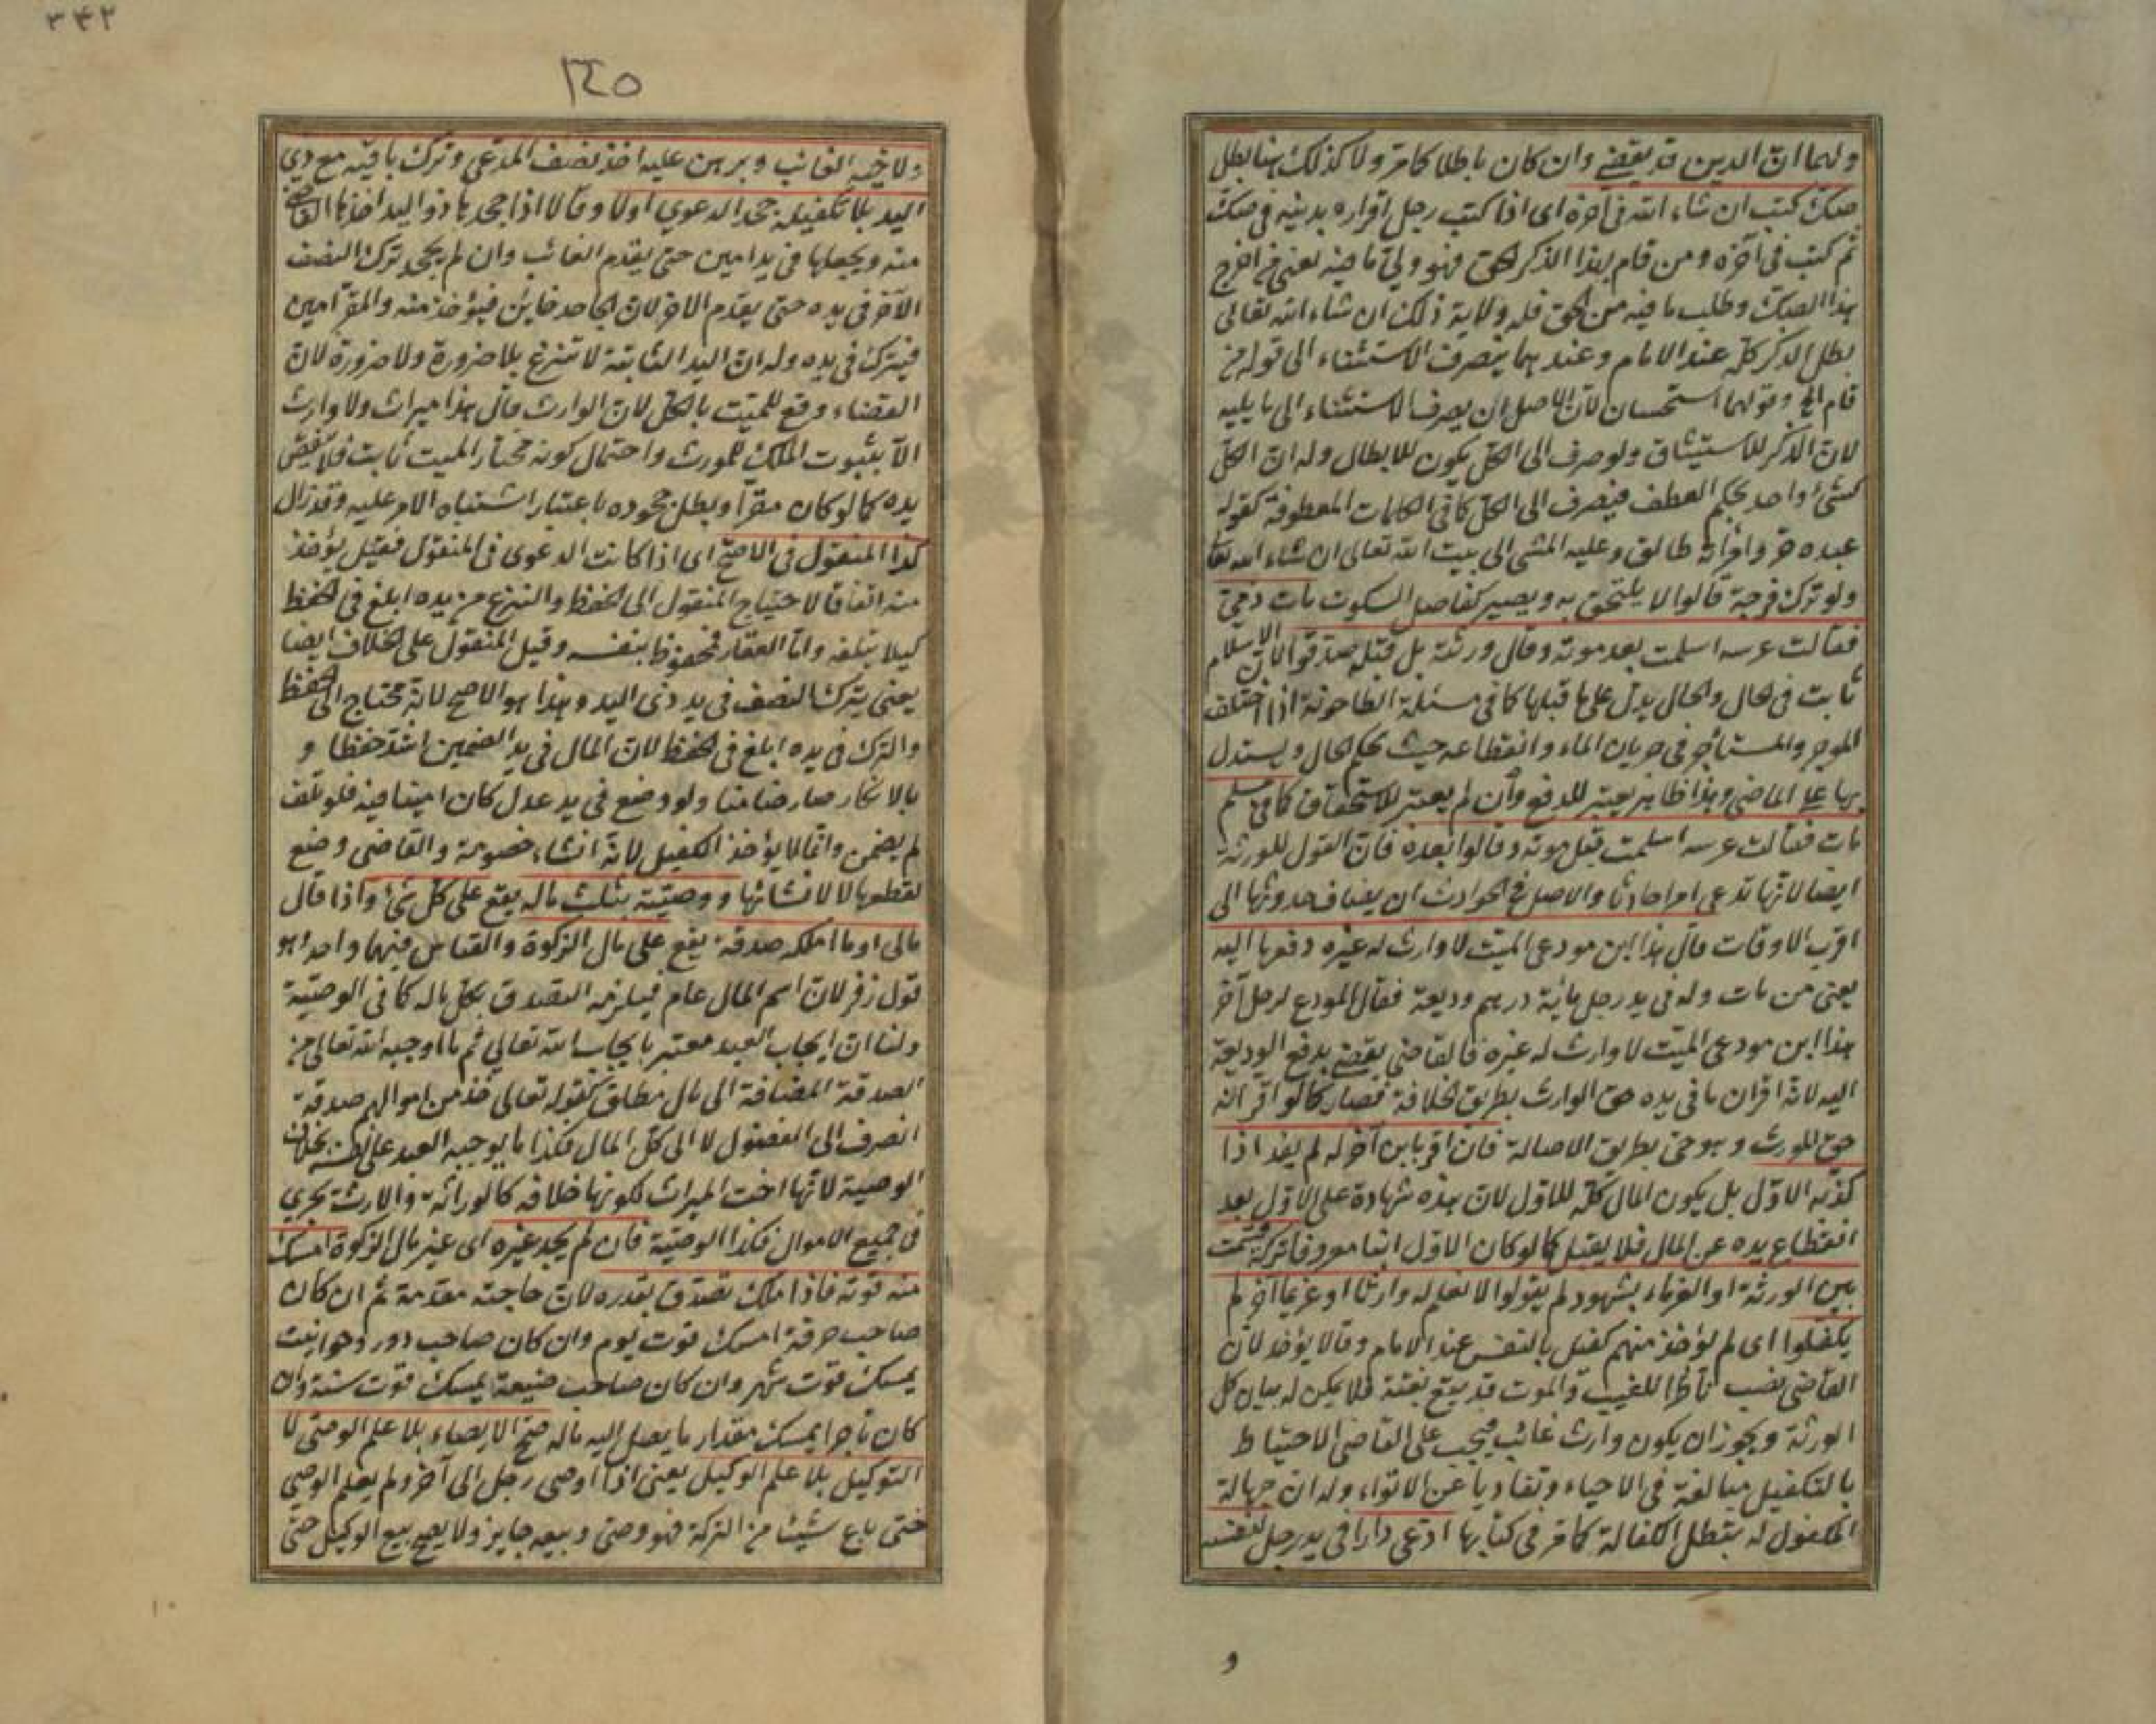 ولهما ان الدين قد يقضى وان كان باطلا كما مر ولا كذلك هنا بطل
صك كتب ان شاء الله فى آخره اى اذا كتب رجل اقراره بدينه فى صك
ثم كتب فى آخره ومن قام بهذا الذكر الحق فهو ولى ما فيه يعنى من اخرج
هذا الصك وطلب ما فيه من الحق فله ولاية ذلك ان شاء الله تعالى
بطل الذكر كله عند الامام وعندهما ينصرف الاستثناء الى قوله من
قام الخ وقولهما استحسان لان الاصل ان يصرف الاستثناء الى ما يليه
لان الذكر للاستيثاق ولو صرف الى الكل يكون للابطال وله ان الكل
كشئ واحد بحكم العطف فيصرف الى الكل كما فى الكلمات المعطوفة كقوله
عبده حر وامرأته طالق وعليه المشى الى بيت الله تعالى ان شاء الله تعالى
ولو ترك فرجة قالوا لا يلتحق به ويصير كفاصل السكوت مات ذمى
فقالت عرسه اسلمت بعد موته وقال ورثته بل قبله صدقوا لان الاسلام
ثابت فى الحال والحال يدل على ما قبلها كما فى مسئلة الطاحونة اذا اختلف
الموجر والمستأجر فى جريان الماء وانقطاعه حيث يحكم الحال ويستدل
بها على الماضى وهذا ظاهر يعتبر للدفع وان لم يعتبر للاستحقاق كما فى مسلم
مات فقالت عرسه اسلمت قبل موته وقالوا بعده فان القول للورثة
ايضا لانها تدعى امرا حادثا والاصل فى الحوادث ان يضاف حدوثها الى
اقرب الاوقات قال هذا ابن مودعى الميت لا وارث له غيره دفعها اليه
يعنى من مات وله فى يد رجل مائة درهم وديعة فقال المودع لرجل آخر
هذا ابن مودعى الميت لا وارث له غيره فالقاضى يقضى بدفع الوديعة
اليه لانه اقر ان ما فى يده حق الوارث بطريق الخلافة فصار كما لو اقر انه
حق المورث وهو حى بطريق الاصالة فان اقر بابن آخر له لم يفد اذا
كذبه الاول بل يكون المال كله للاول لان هذه شهادة على الاول بعد
انقطاع يده عن المال فلا يقبل كما لو كان الاول ابنا معروفا تركة قسمت
بين الورثة او الغرماء بشهود لم يقولوا لا نعلم له وارثا او غريما آخر لم
يكفلوا اى لم يؤخذ منهم كفيل بالنفس عند الامام وقالا يؤخذ لان
القاضى نصب ناظرا للغيب والموت قد يقع بغتة فلا يمكن له بيان كل
الورثة ويجوز ان يكون وارث غائب فيجب على القاضى الاحتياط
بالتكفيل مبالغة فى الاحياء وتفاديا عن الاتواء وله ان جهالة
المكفول له يبطل الكفالة كما مر فى كتابها ادعى دارا فى يد رجل لنفسه
و
٣٤٢
ولاخيه الغائب وبرهن عليه اخذ نصف المدعى وترك باقيه مع ذى
اليد بلا تكفيله جحد الدعوى اولا وقالا اذا جحدها ذو اليد اخذها القاضى
منه ويجعلها فى يد امين حتى يقدم الغائب وان لم يجحد ترك النصف
الآخر فى يده حتى يقدم الآخر لان الجاحد خاين فيؤخذ منه والمقر امين
فيترك فى يده وله ان اليد الثابتة لا تنزع بلا ضرورة ولا ضرورة لان
القضاء وقع للميت بالكل لان الوارث قال هذا ميراث ولا وارث
الا بثبوت الملك للمورث واحتمال كونه مختار الميت ثابت فلا ينقض
يده كما لو كان مقرا وبطل جحوده باعتبار اشتباه الامر عليه وقد زال
كذا المنقول فى الاصح اى اذا كانت الدعوى فى المنقول فقيل يؤخذ
منه اتفاقا لاحتياج المنقول الى الحفظ والنزع من يده ابلغ فى الحفظ
كيلا يتلفه واما العقار فمحفوظ بنفسه وقيل المنقول على الخلاف ايضا
يعنى يترك النصف فى يد ذى اليد وهذا هو الاصح لانه محتاج الى الحفظ
والترك فى يده ابلغ فى الحفظ لان المال فى يد الضمين اشد حفظا و
بالانكار صار ضامنا ولو وضع فى يد عدل كان امينا فيه فلو تلف
لم يضمن وانما لا يؤخذ الكفيل لانه انشاء خصومة والقاضى وضع
لقطعها لا لانشائها ووصيته بثلث ماله يقع على كل شئ واذا قال
مالى او ما املكه صدقة يقع على مال الزكوة والقياس فيهما واحد وهو
قول زفر لان اسم المال عام فيلزمه التصدق بكل ماله كما فى الوصية
ولنا ان ايجاب العبد معتبر بايجاب الله تعالى ثم ما اوجبه الله تعالى من
الصدقة المضافة الى مال مطلق كقوله تعالى خذ من اموالهم صدقة
انصرف الى الفضول لا الى كل المال فكذا ما يوجبه العبد على نفسه بخلاف
الوصية لانها اخت الميراث لكونها خلافه كالوراثة والارث يجرى
فى جميع الاموال فكذا الوصية فان لم يجد غيره اى غير مال الزكوة امسك
منه قوته فاذا ملك تصدق بقدره لان حاجته مقدمة ثم ان كان
صاحب حرفة امسك قوت يوم وان كان صاحب دور وحوانيت
يمسك قوت شهر وان كان صاحب ضيعة يمسك قوت سنة وان
كان تاجرا يمسك مقدار ما يصل اليه ماله صح الايصاء بلا علم الوصى لا
التوكيل بلا علم الوكيل يعنى اذا اوصى رجل الى آخر ولم يعلم الوصى
حتى باع شيئا من التركة فهو وصى وبيعه جايز ولا يصح بيع الوكيل حتى